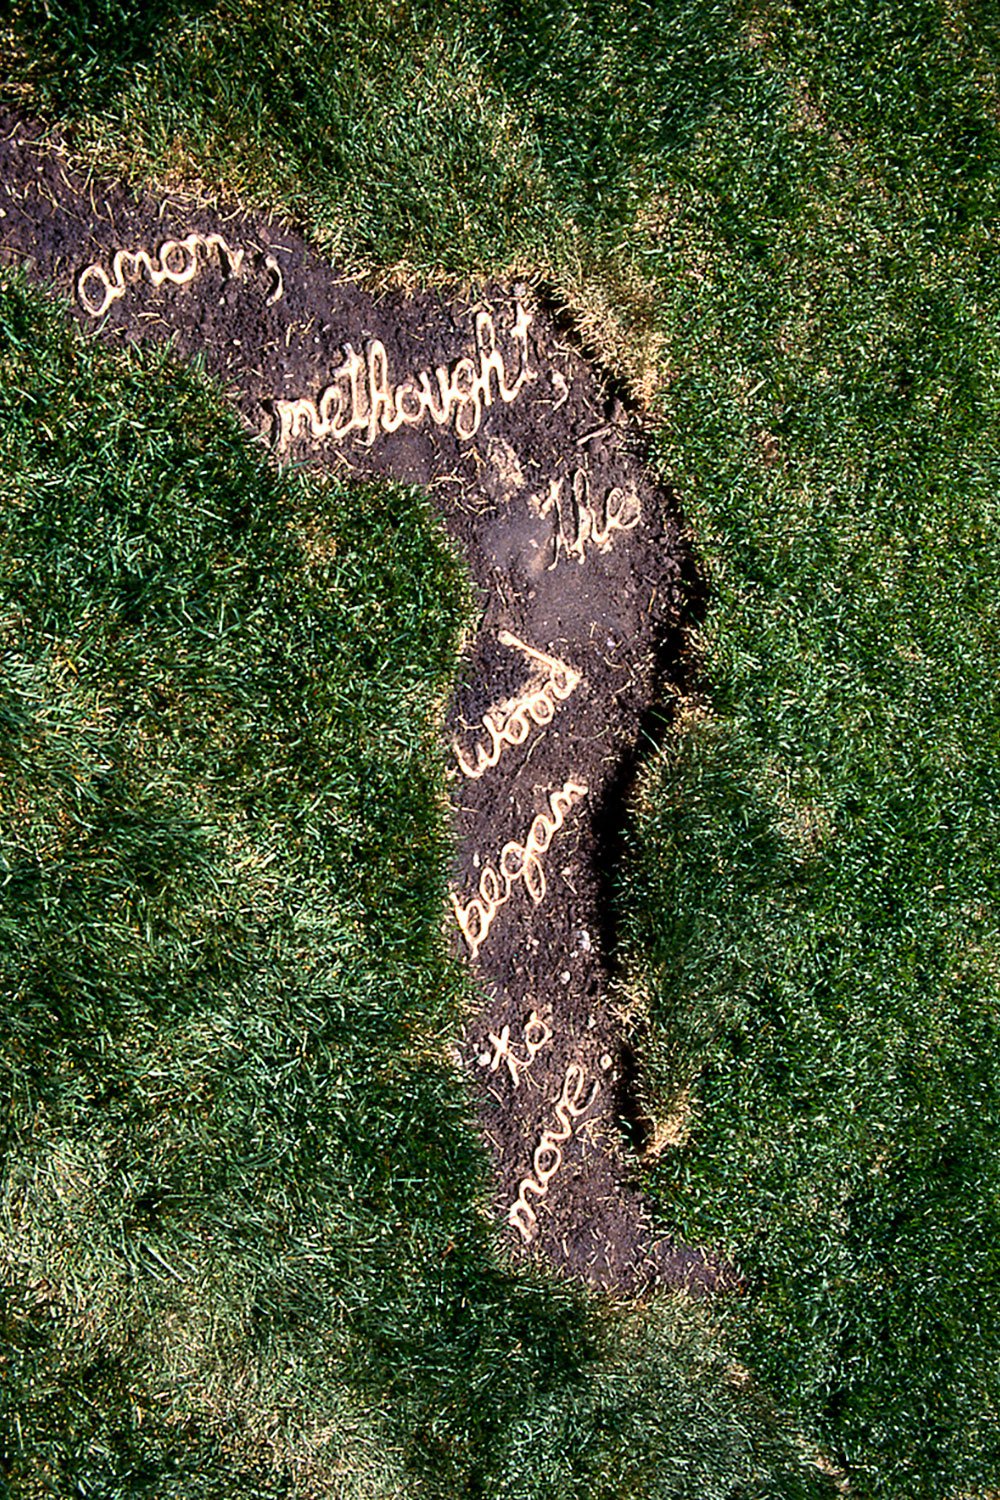 anon,
methought,
the
wood
began
to
move